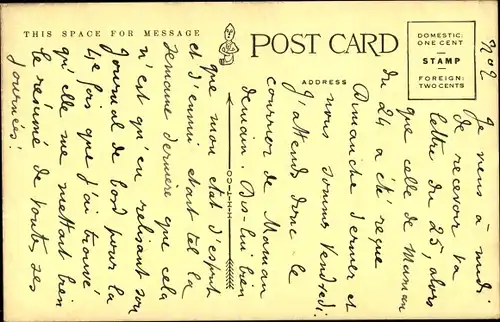 THIS SPACE FOR MESSAGE
POST CARD
ADDRESS
DOMESTIC:
ONE CENT
STAMP
FOREIGN:
TWO CENTS
No 2
Je viens à midi
de recevoir ta
lettre du 25, alors
que celle de Maman
du 24 a été reçue
Dimanche dernier et
nous sommes Vendredi.
J'attends donc le
courrier de Maman
demain. Dis-lui bien
que mon état d'esprit
et d'ennui était tel la
semaine dernière que cela
n'est qu'en relisant son
Journal de bord pour la
4e fois que j'ai trouvé
qu'elle me mettait bien
le résumé de toutes ses
journées!